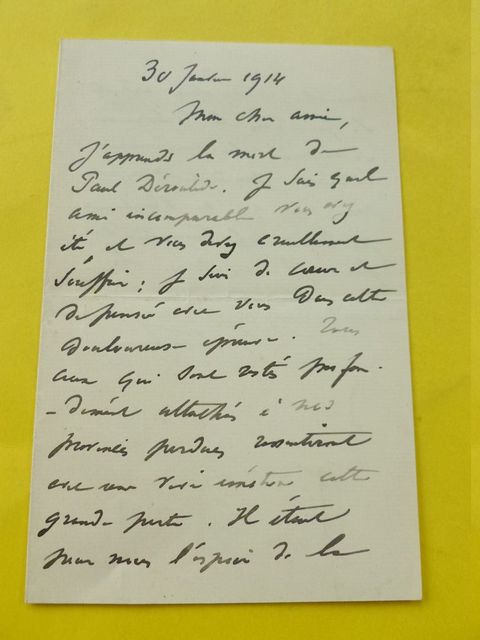 30 Janvier 1914
Mon cher ami,
J'apprends la mort de
Paul Déroulède. Je sais quel
ami incomparable vous avez
été et vous devez cruellement
souffrir ; je suis de cœur et
de pensée avec vous dans cette
douloureuse épreuve. Tous
ceux qui sont restés profon-
-dément attachés à nos
provinces perdues ressentiront
avec une vive émotion cette
grande perte. Il était
pour nous l'espoir de la